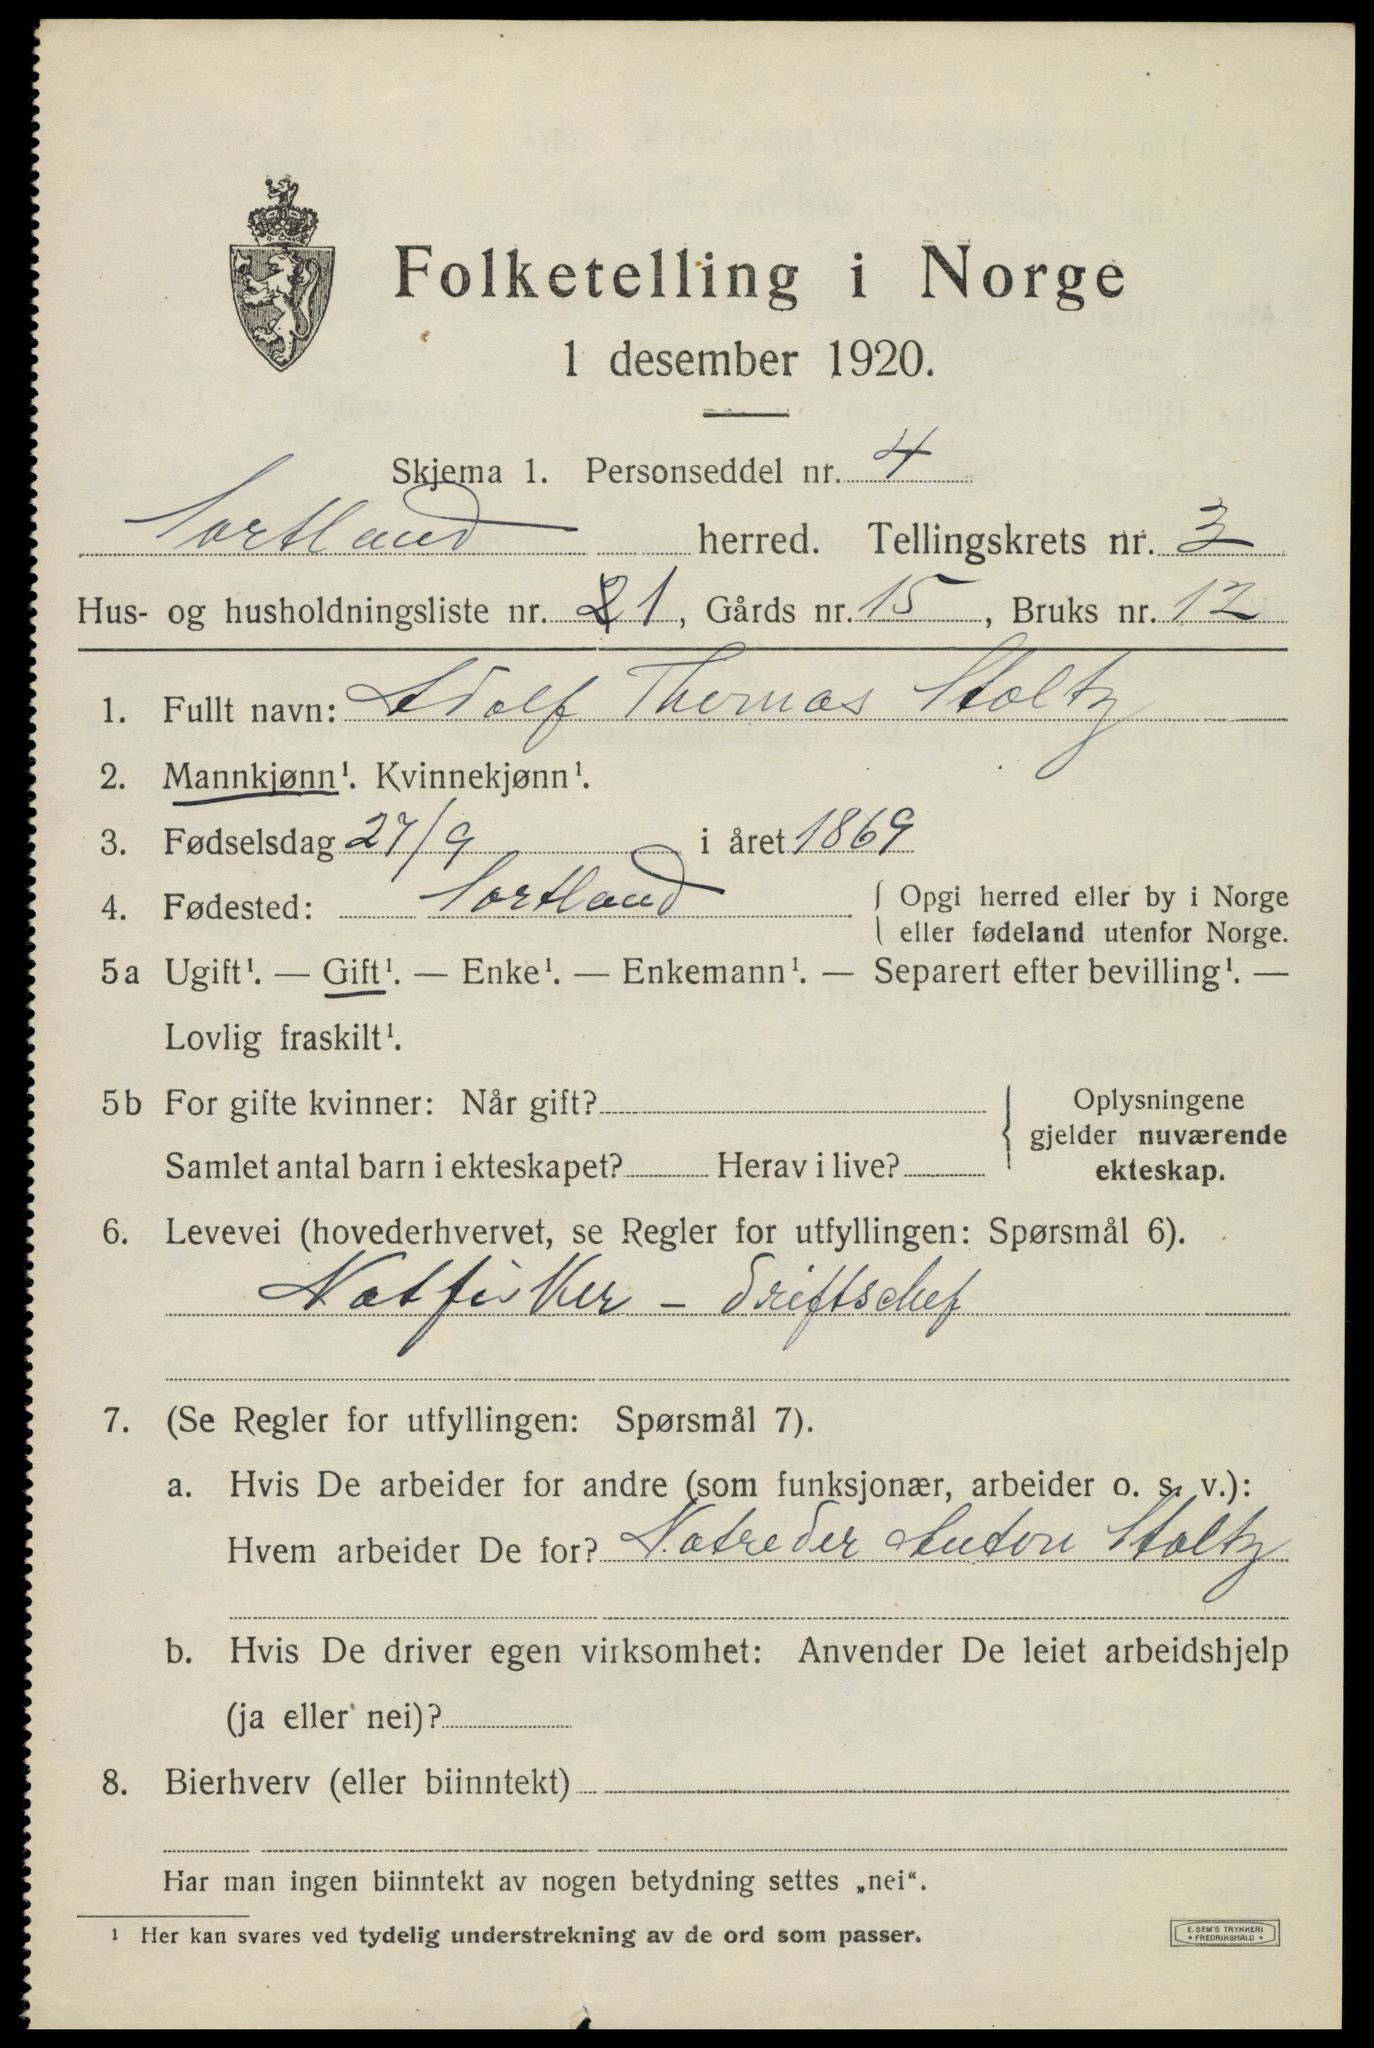 Folketelling i Norge
1 desember 1920.
Skjema 1. Personseddel nr. 4
Sortland herred. Tellingskrets nr. 3
Hus- og husholdningsliste nr. 21, Gårds nr. 15, Bruks nr. 12
1. Fullt navn: Adolf Thomas Stoltz
2. Mannkjønn¹. Kvinnekjønn¹.
3. Fødselsdag 27/9 i året 1869
4. Fødested: Sortland { Opgi herred eller by i Norge
eller fødeland utenfor Norge.
5a Ugift¹. — Gift¹. — Enke¹. — Enkemann¹. — Separert efter bevilling¹. —
Lovlig fraskilt¹.
5b For gifte kvinner: Når gift?
Samlet antal barn i ekteskapet? Herav i live?
{ Oplysningene
gjelder nuværende
ekteskap.
6. Levevei (hovederhvervet, se Regler for utfyllingen: Spørsmål 6).
Notfisker - driftschef
7. (Se Regler for utfyllingen: Spørsmål 7).
a. Hvis De arbeider for andre (som funksjonær, arbeider o. s. v.):
Hvem arbeider De for? Notreder Anton Stoltz
b. Hvis De driver egen virksomhet: Anvender De leiet arbeidshjelp
(ja eller nei)?
8. Bierhverv (eller biinntekt)
Har man ingen biinntekt av nogen betydning settes „nei“.
¹ Her kan svares ved tydelig understrekning av de ord som passer.
E. SEM'S TRYKKERI
* FREDRIKSHALD *